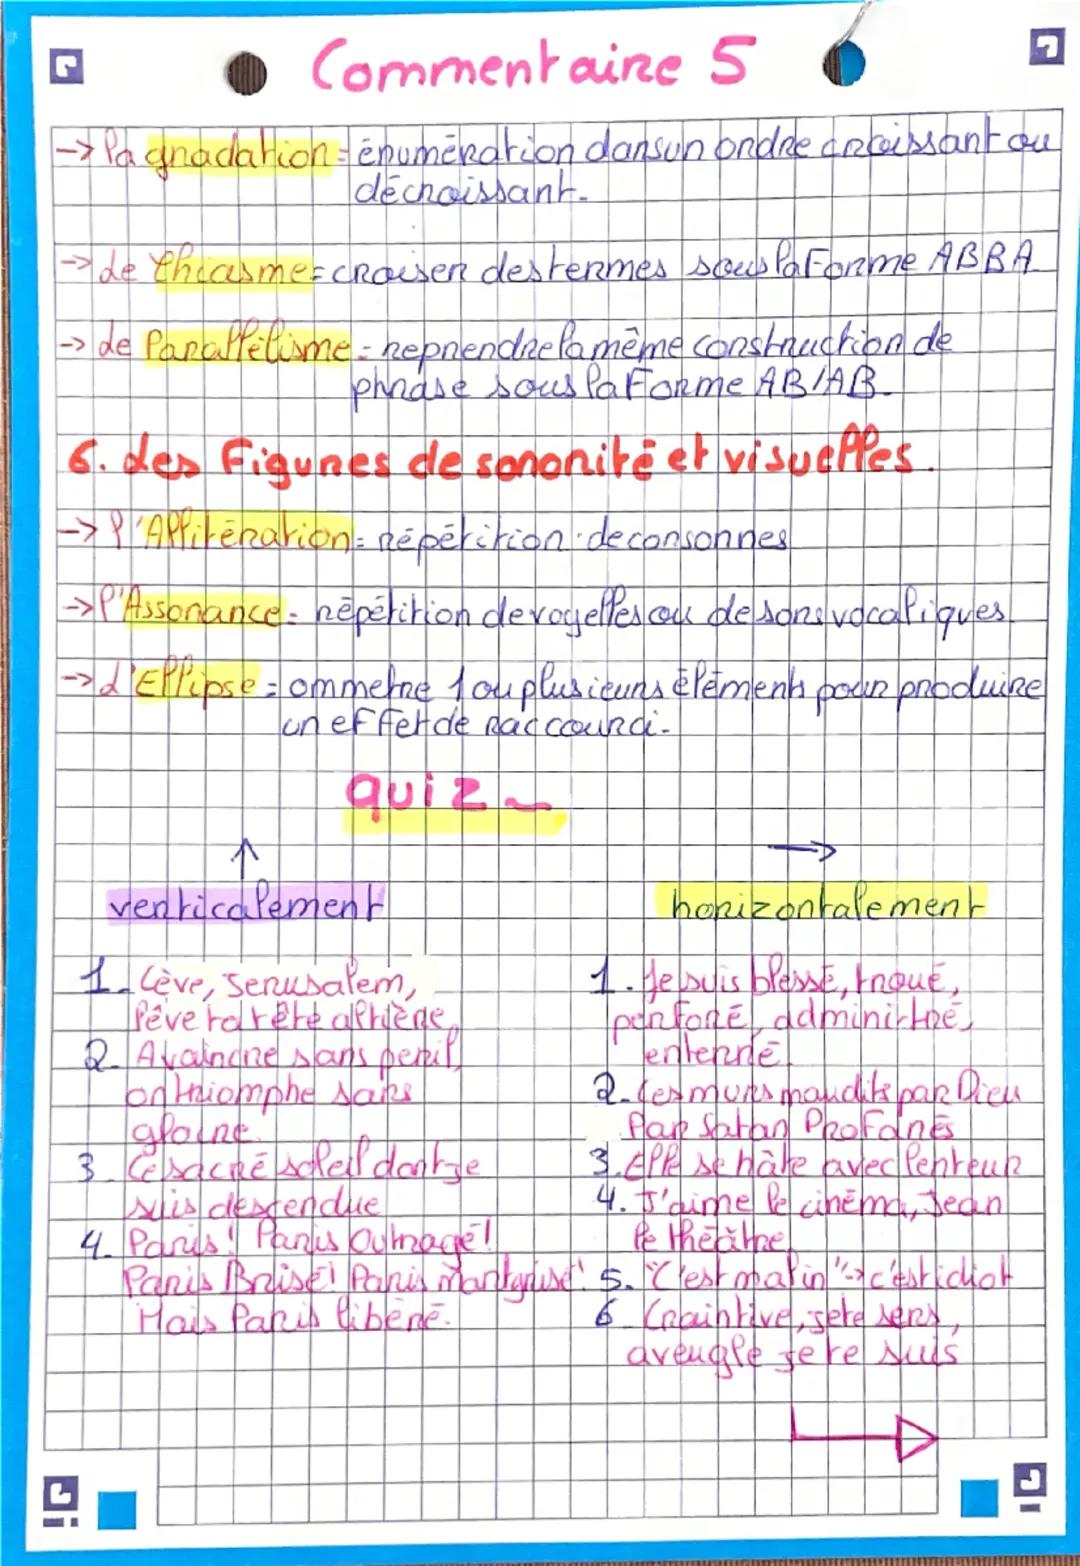 Commentaire 5
-> la gradation = énumération dans un ordre croissant ou
décroissant.
-> le Chiasme = croiser des termes sous la Forme ABBA
-> le Parallélisme = reprendre la même construction de
phrase sous la Forme AB/AB.
6. Les Figures de sonorité et visuelles.
-> l'Allitération = répétition de consonnes
-> l'Assonance = répétition de voyelles ou de sons vocaliques
-> L'Ellipse = ommetre 1 ou plusieurs éléments pour produire
un effet de raccourci.
quiz
↑
verticalement
1. Lève, Jerusalem,
lève ta tête altière
2. A vaincre sans peril,
on triomphe sans
gloire
3. Ce sacré soleil dont je
suis descendue
4. Paris! Paris Outragé!
Paris Brisé! Paris martyrisé!
Mais Paris libéré.
→
horizontalement
1. Je suis blessé, troué,
perforé, adminirtré,
enterré.
2. Les murs maudits par Dieu
Par Satan Profanés
3. Elle se hâte avec lenteur
4. J'aime le cinéma, Jean
le théâtre
5. "C'est malin" -> c'est idiot
6. Craintive, je te sers,
aveugle je te suis